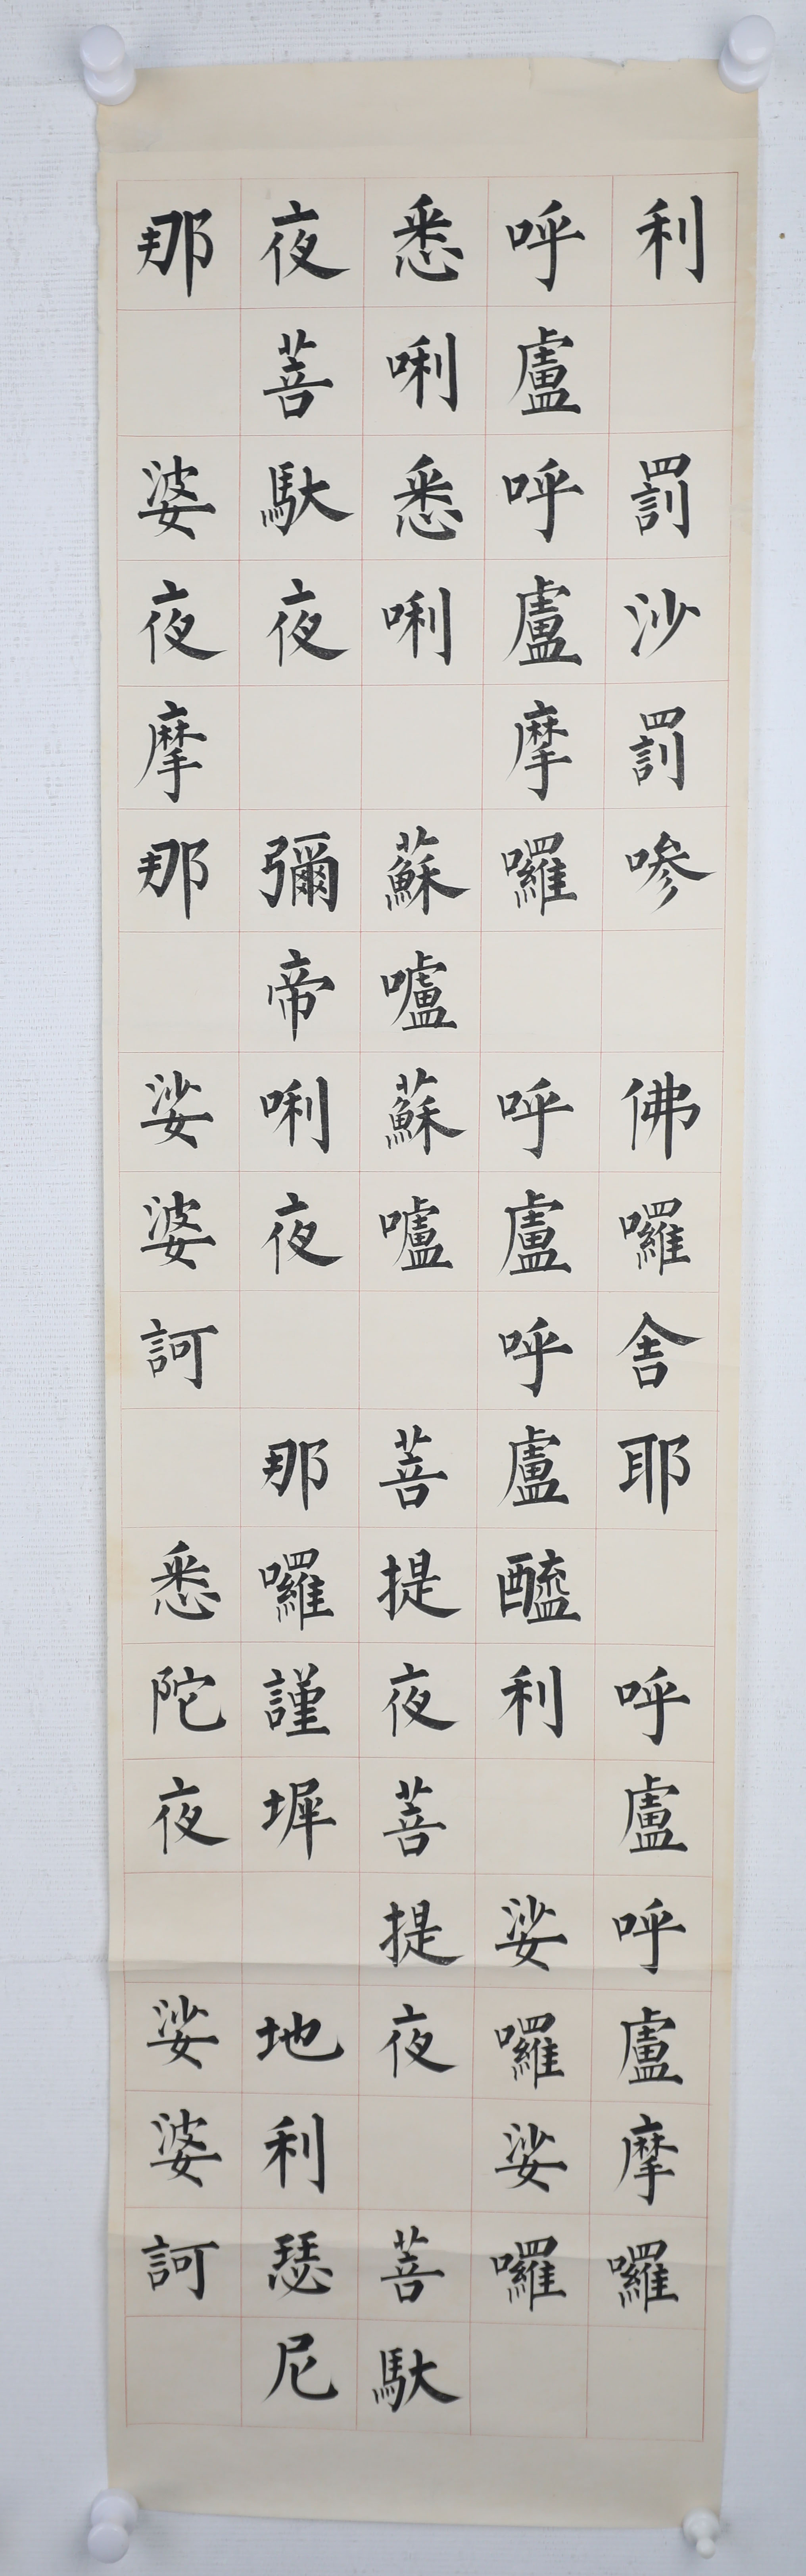 利 罰沙罰嘇 佛囉舍耶 呼盧呼盧摩囉
呼盧呼盧摩囉 呼盧呼盧醯利 娑囉娑囉
悉唎悉唎 蘇嚧蘇嚧 菩提夜菩提夜 菩馱
夜菩馱夜 彌帝唎夜 那囉謹墀 地利瑟尼
那 婆夜摩那 娑婆訶 悉陀夜 娑婆訶